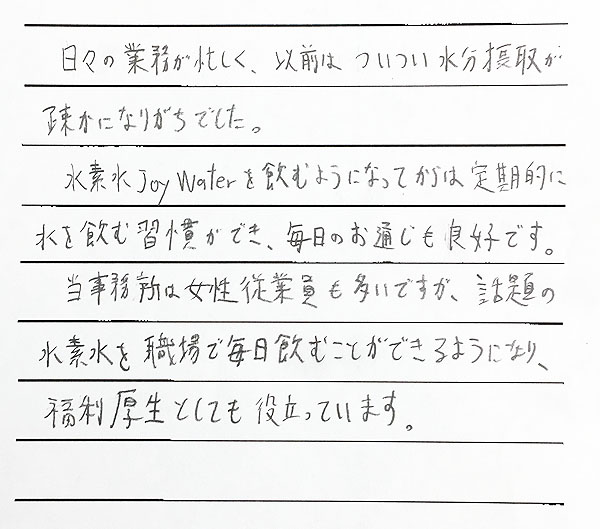 日々の業務が忙しく、以前はついつい水分摂取が
疎かになりがちでした。
水素水Joy Waterを飲むようになってからは定期的に
水を飲む習慣ができ、毎日のお通じも良好です。
当事務所は女性従業員も多いですが、話題の
水素水を職場で毎日飲むことができるようになり、
福利厚生としても役立っています。